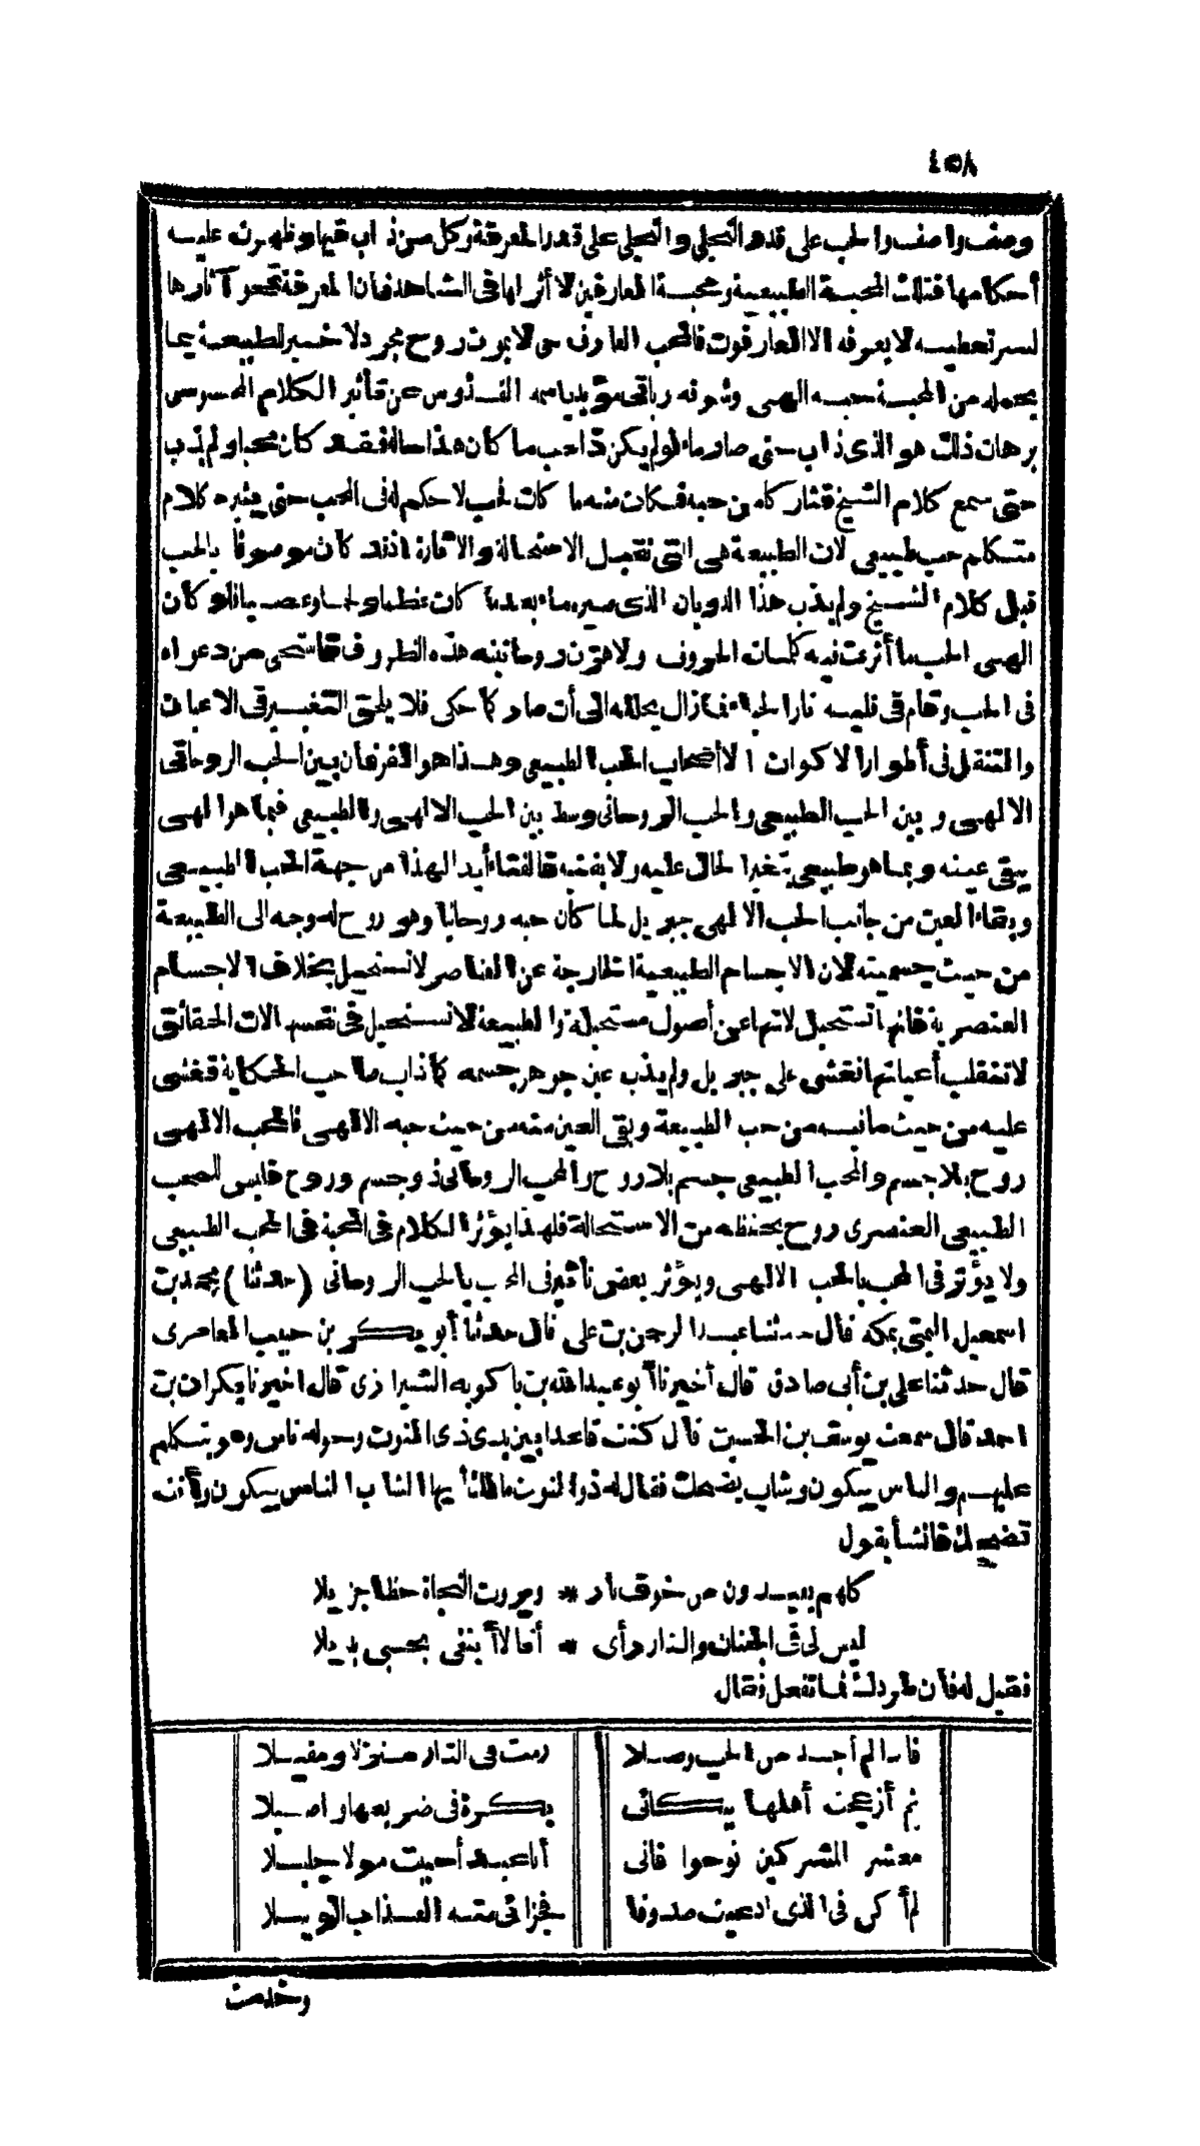 ٤٥٨
وصف واصف والحب على قدر التجلي والتجلي على قدر المعرفة وكل من ذاب فيها وظهرت عليه
أحكامها فتلك المحبة الطبيعية ومحبة العارفين لا أثر لها في الشاهد فان المعرفة تمحو آثارها
لسر تعطيه لا يعرفه الا العارفون فالمحب العارف حي لا يموت روح مجرد لا خبر لطبيعة بما
يحمله من المحبة حبه الهي وشوقه رباني مؤيد باسمه القدوس عن تأثير الكلام المحسوس
برهان ذلك هو الذي ذاب حتى صار ماء لو لم يكن ذا حب ما كان هذا حاله فقد كان محبا ولم يذب
حتى سمع كلام الشيخ فثار كامن حبه فكان منه ما كان فحب لا حكم له في المحب حتى يثيره كلام
متكلم حب طبيعي لان الطبيعة هي التي تقبل الاستحالة والاثارة اذ قد كان موصوفا بالحب
قبل كلام الشيخ ولم يذب هذا الذوبان الذي صيره ماء بعدما كان عظما ولحما وعصبا فلو كان
الهي الحب ما أثرت فيه كلمات الحروف ولا هزت روحانيته هذه الظروف فاستحى من دعواه
في الحب وقام في قلبه نار الحياء فما زال يحلله الى أن صار كما حكى فلا يلحق التغيير في الاعيان
والتنقل في أطوار الاكوان الا أصحاب الحب الطبيعي وهذا هو الفرقان بين الحب الروحاني
الالهي وبين الحب الطبيعي والحب الروحاني وسط بين الحب الالهي والطبيعي فبما هو الهي
يبقى عينه وبما هو طبيعي يتغير الحال عليه ولا يفنيه فالفناء أبدا لهذا من جهة الحب الطبيعي
وبقاء العين من جانب الحب الالهي جبريل لما كان حبه روحانيا وهو روح له وجه الى الطبيعة
من حيث جسميته لان الاجسام الطبيعية الخارجة عن العناصر لا تستحيل بخلاف الاجسام
العنصرية فانها تستحيل لانها عن أصول مستحيلة والطبيعة لا تستحيل في نفسها لان الحقائق
لا تنقلب أعيانها فغشي على جبريل ولم يذب عين جوهر جسمه كما ذاب صاحب الحكاية فغشي
عليه من حيث ما فيه من حب الطبيعة وبقي العين منه من حيث حبه الالهي فالمحب الالهي
روح بلا جسم والمحب الطبيعي جسم بلا روح والمحب الروحاني ذو جسم وروح فليس للمحب
الطبيعي العنصري روح يحفظه من الاستحالة فلهذا يؤثر الكلام في المحبة في المحب الطبيعي
ولا يؤثر في المحب بالحب الالهي ويؤثر بعض تأثير في المحب بالحب الروحاني (حدثنا) محمد بن
اسمعيل اليمني بمكة قال حدثنا عبد الرحمن بن علي قال حدثنا أبو بكر بن حبيب العامري
قال حدثنا علي بن أبي صادق قال أخبرنا أبو عبد الله بن باكويه الشيرازي قال اخبرنا بكران بن
احمد قال سمعت يوسف بن الحسين قال كنت قاعدا بين يدي ذي النون وحوله ناس وهو يتكلم
عليهم والناس يبكون وشاب يضحك فقال له ذو النون مالك أيها الشاب الناس يبكون وأنت
تضحك فانشأ يقول
كلهم يعبدون من خوف نار * ويرون النجاة حظا جزيلا
ليس لي في الجنان والنار رأي * أنا لا أبتغي بحبي بديلا
فقيل له فان طردك فما تفعل فقال
فاذا لم أجد من الحب وصلا رمت في النار منزلا ومقيلا
ثم أزعجت أهلها ببكائي بكرة في ضريعها وأصيلا
معشر المشركين نوحوا فاني أنا عبد أحببت مولا جليلا
لم أكن في الذي ادعيت صدوقا فجزاني منه العذاب الوبيلا
وخدمت